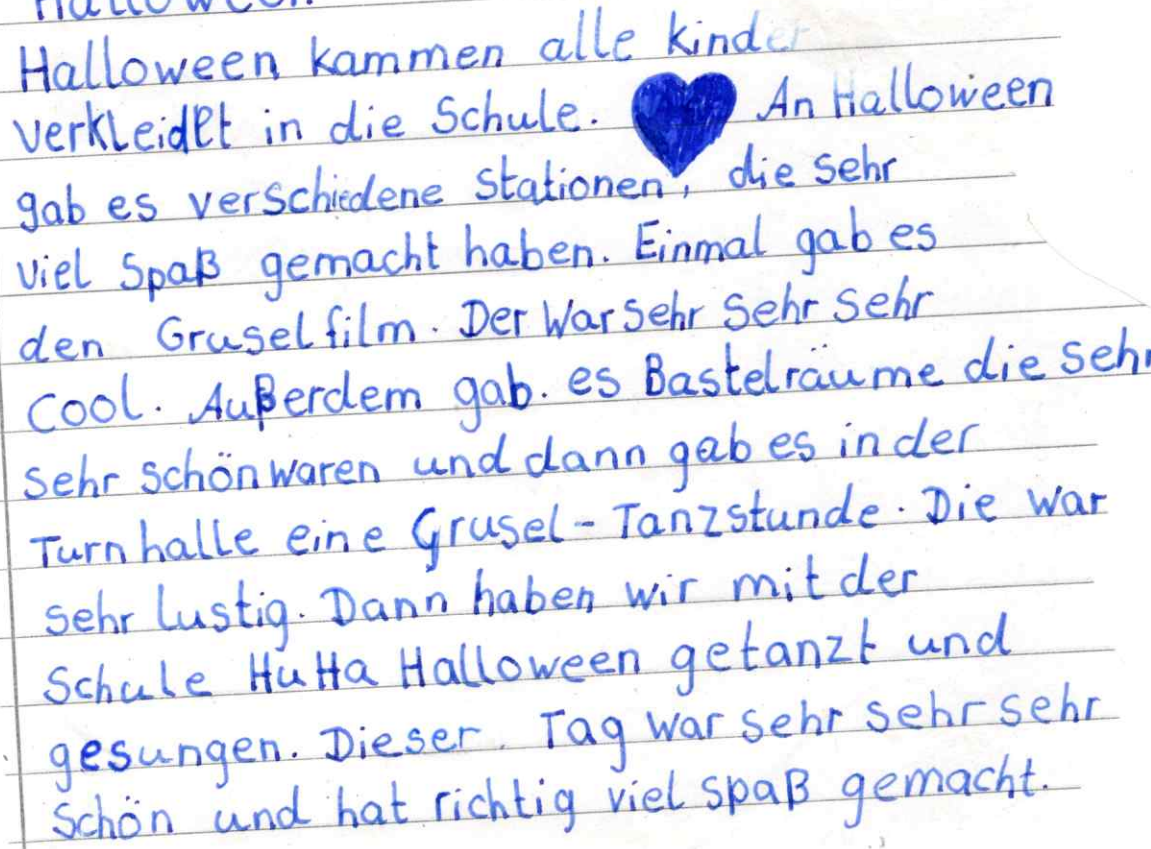 Halloween
Halloween kammen alle kinder
verkleidet in die Schule. An Halloween
gab es verschiedene Stationen, die sehr
viel Spaß gemacht haben. Einmal gab es
den Gruselfilm. Der War sehr sehr sehr
Cool. Außerdem gab. es Bastelräume die sehr
sehr schön waren und dann gab es in der
Turnhalle eine Grusel-Tanzstunde. Die war
sehr lustig. Dann haben wir mit der
Schule Hutta Halloween getanzt und
gesungen. Dieser Tag war sehr sehr sehr
schön und hat richtig viel spaß gemacht.